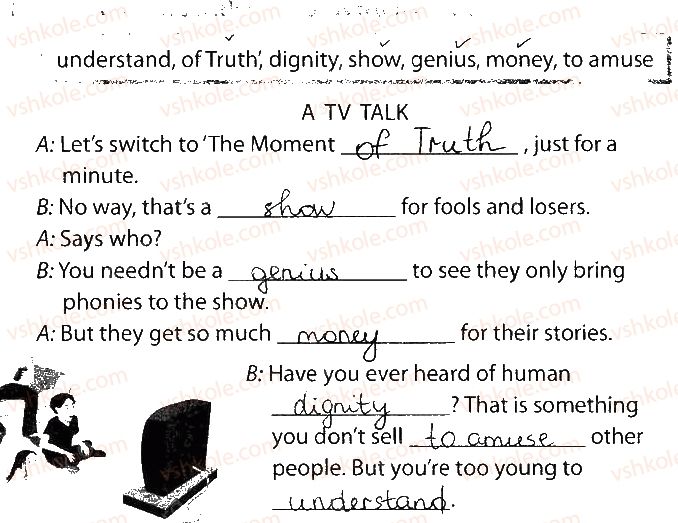 understand, of Truth', dignity, show, genius, money, to amuse
A TV TALK
A: Let's switch to 'The Moment of Truth, just for a
minute.
B: No way, that's a show for fools and losers.
A: Says who?
B: You needn't be a genius to see they only bring
phonies to the show.
A: But they get so much money for their stories.
B: Have you ever heard of human
dignity? That is something
you don't sell to amuse other
people. But you're too young to
understand.